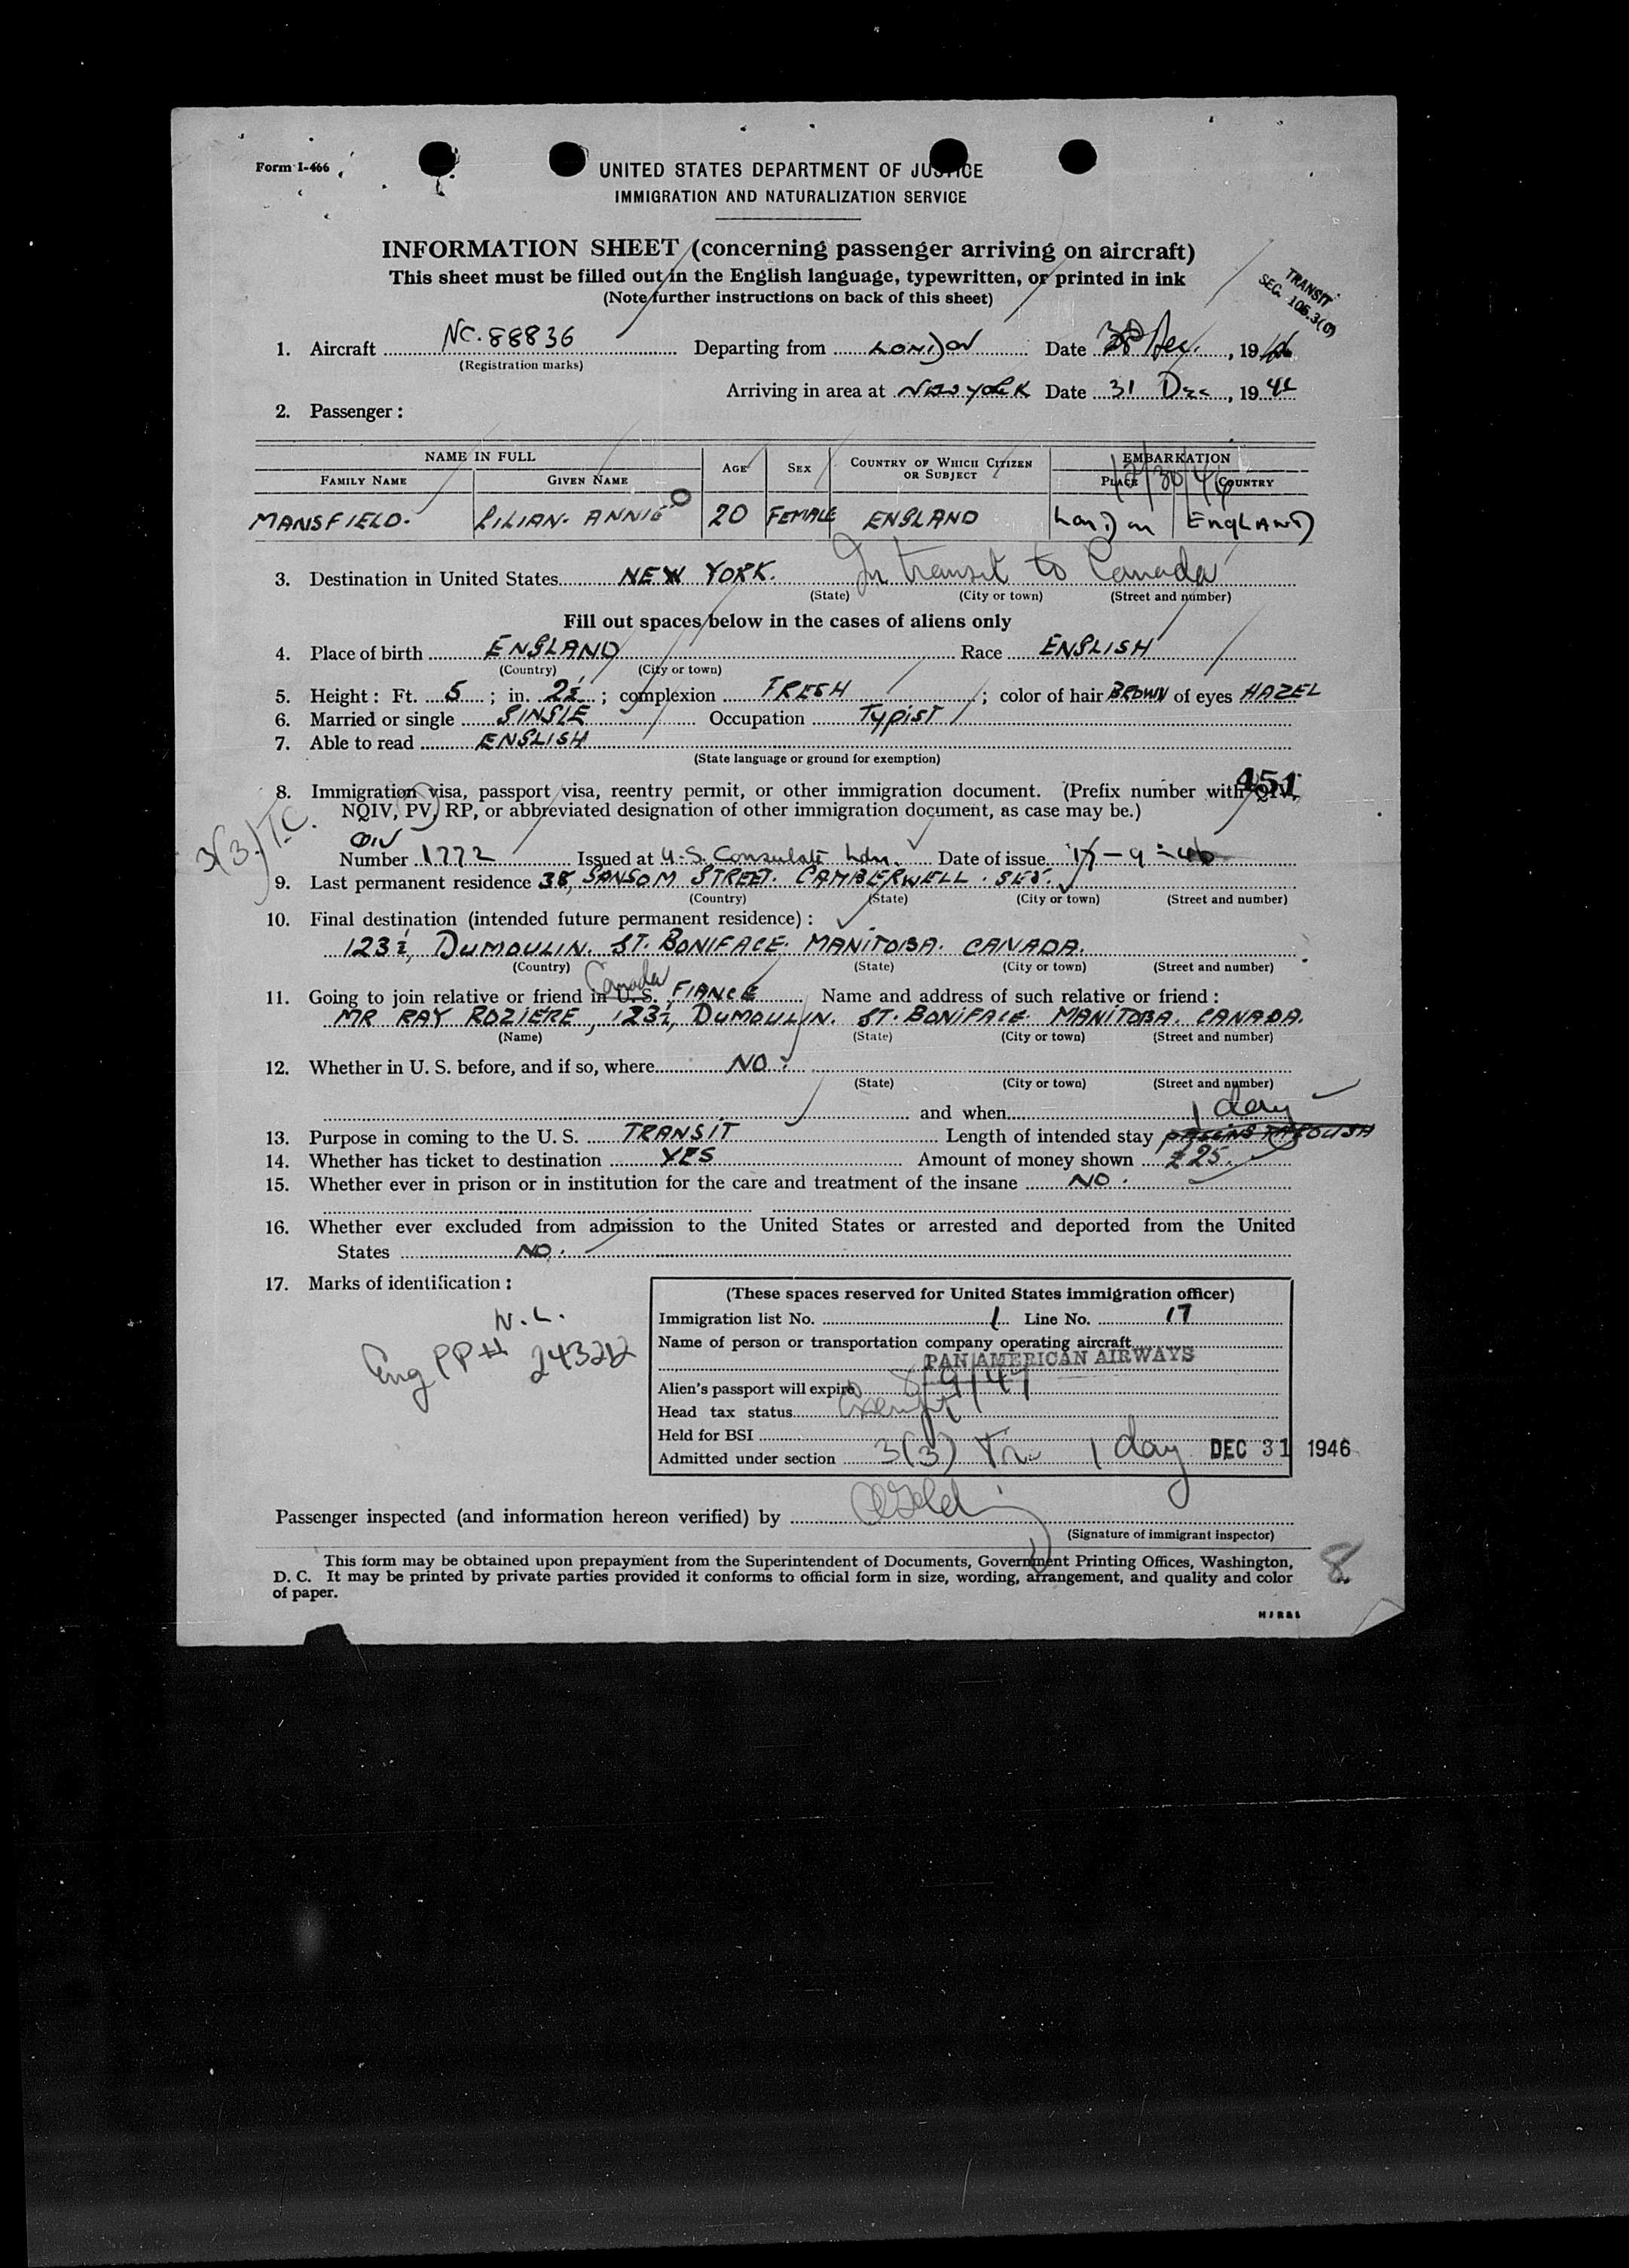 Form I-466
UNITED STATES DEPARTMENT OF JUSTICE
IMMIGRATION AND NATURALIZATION SERVICE
INFORMATION SHEET (concerning passenger arriving on aircraft)
This sheet must be filled out in the English language, typewritten, or printed in ink
(Note further instructions on back of this sheet)
TRANSIT
SEC. 105.3(0)
1. Aircraft NC.88836 Departing from LONDON Date 30 Dec., 1946
(Registration marks)
Arriving in area at NEW YORK Date 31 Dec, 1946
2. Passenger:
NAME IN FULL AGE SEX COUNTRY OF WHICH CITIZEN OR SUBJECT EMBARKATION
FAMILY NAME GIVEN NAME PLACE COUNTRY
12/30/46
MANSFIELD. LILIAN. ANNIE 20 FEMALE ENGLAND London ENGLAND
3. Destination in United States NEW YORK. In transit to Canada
(State) (City or town) (Street and number)
Fill out spaces below in the cases of aliens only
4. Place of birth ENGLAND Race ENGLISH
(Country) (City or town)
5. Height: Ft. 5; in. 2½; complexion FRESH; color of hair BROWN of eyes HAZEL
6. Married or single SINGLE Occupation TYPIST
7. Able to read ENGLISH
(State language or ground for exemption)
451
8. Immigration visa, passport visa, reentry permit, or other immigration document. (Prefix number with QIV,
NQIV, PV, RP, or abbreviated designation of other immigration document, as case may be.)
3(3) T.C.
Number 1772 Issued at U.S. Consulate Ldn. Date of issue 17-9-46
9. Last permanent residence 38, SANSOM STREET. CAMBERWELL. SE5.
(Country) (State) (City or town) (Street and number)
10. Final destination (intended future permanent residence):
123½, DUMOULIN. ST. BONIFACE. MANITOBA. CANADA.
(Country) (State) (City or town) (Street and number)
Canada
11. Going to join relative or friend in U.S. FIANCE Name and address of such relative or friend:
MR RAY ROZIERE, 123½, DUMOULIN. ST. BONIFACE. MANITOBA. CANADA.
(Name) (State) (City or town) (Street and number)
12. Whether in U. S. before, and if so, where NO.
(State) (City or town) (Street and number)
and when
1 day
13. Purpose in coming to the U. S. TRANSIT Length of intended stay PASSING THROUGH
14. Whether has ticket to destination YES Amount of money shown £25.
15. Whether ever in prison or in institution for the care and treatment of the insane NO.
16. Whether ever excluded from admission to the United States or arrested and deported from the United
States NO.
17. Marks of identification:
Eng PP#
(These spaces reserved for United States immigration officer)
Immigration list No. 1 Line No. 17
Name of person or transportation company operating aircraft
PAN AMERICAN AIRWAYS
Alien's passport will expire 8/9/47
Head tax status Exempt
Held for BSI
Admitted under section 3(3) Tr. 1 day DEC 31 1946
Passenger inspected (and information hereon verified) by
(Signature of immigrant inspector)
This form may be obtained upon prepayment from the Superintendent of Documents, Government Printing Offices, Washington,
D. C. It may be printed by private parties provided it conforms to official form in size, wording, arrangement, and quality and color
of paper.
8